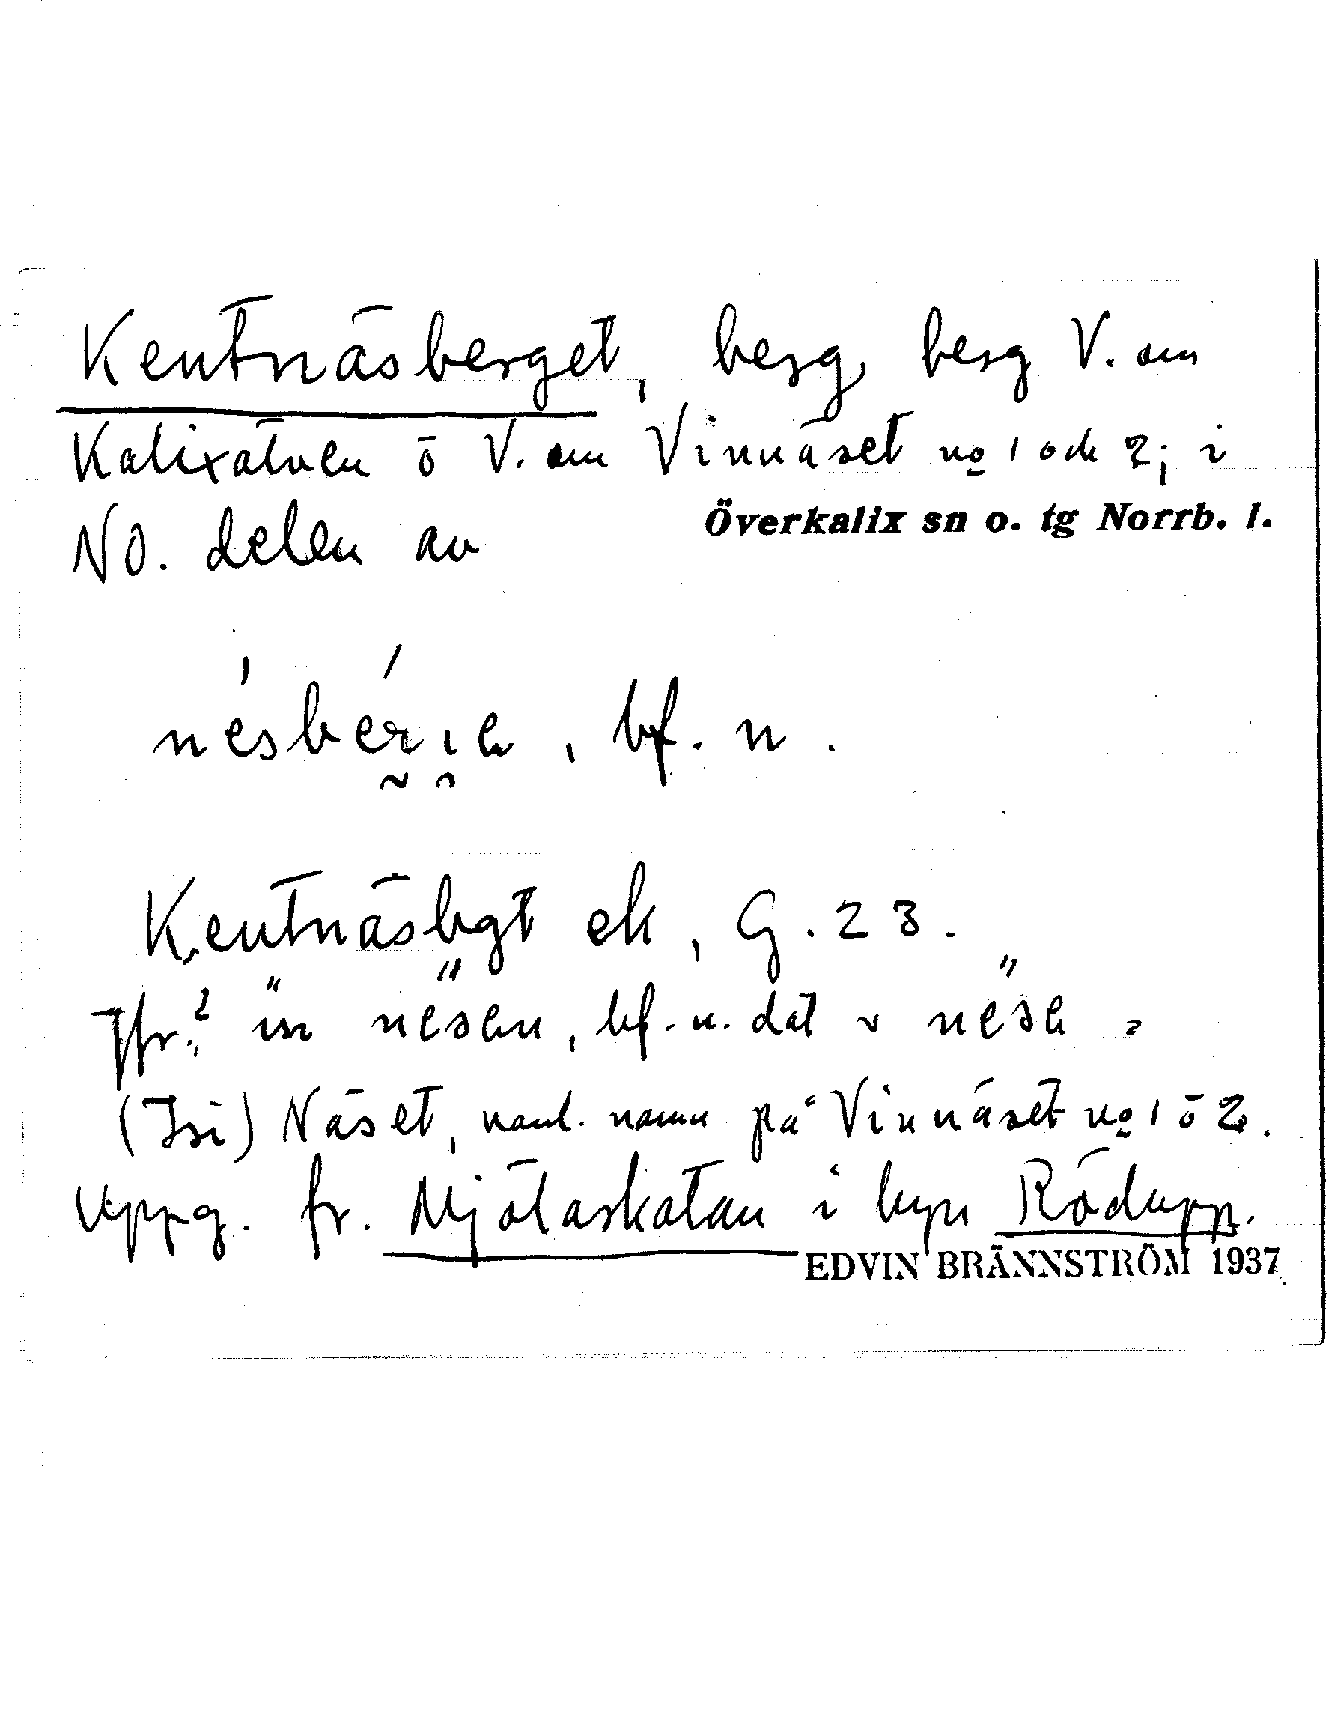 Kentnäsberget, berg, berg V. om
Kalixälven ö V. om Vinnäset no 1 och 2; i
Överkalix sn o. tg Norrb. l.
NO. delen av
bf. n.
Kentnäsbgt ek, G. 23.
Jfr.? in nesen, bf. n. dat v nese
(Isi) Näset, vanl. namn på Vinnäset no 1 ö 2.
Uppg. fr. Mjölaskatan i byn Rödupp.
EDVIN BRÄNNSTRÖM 1937